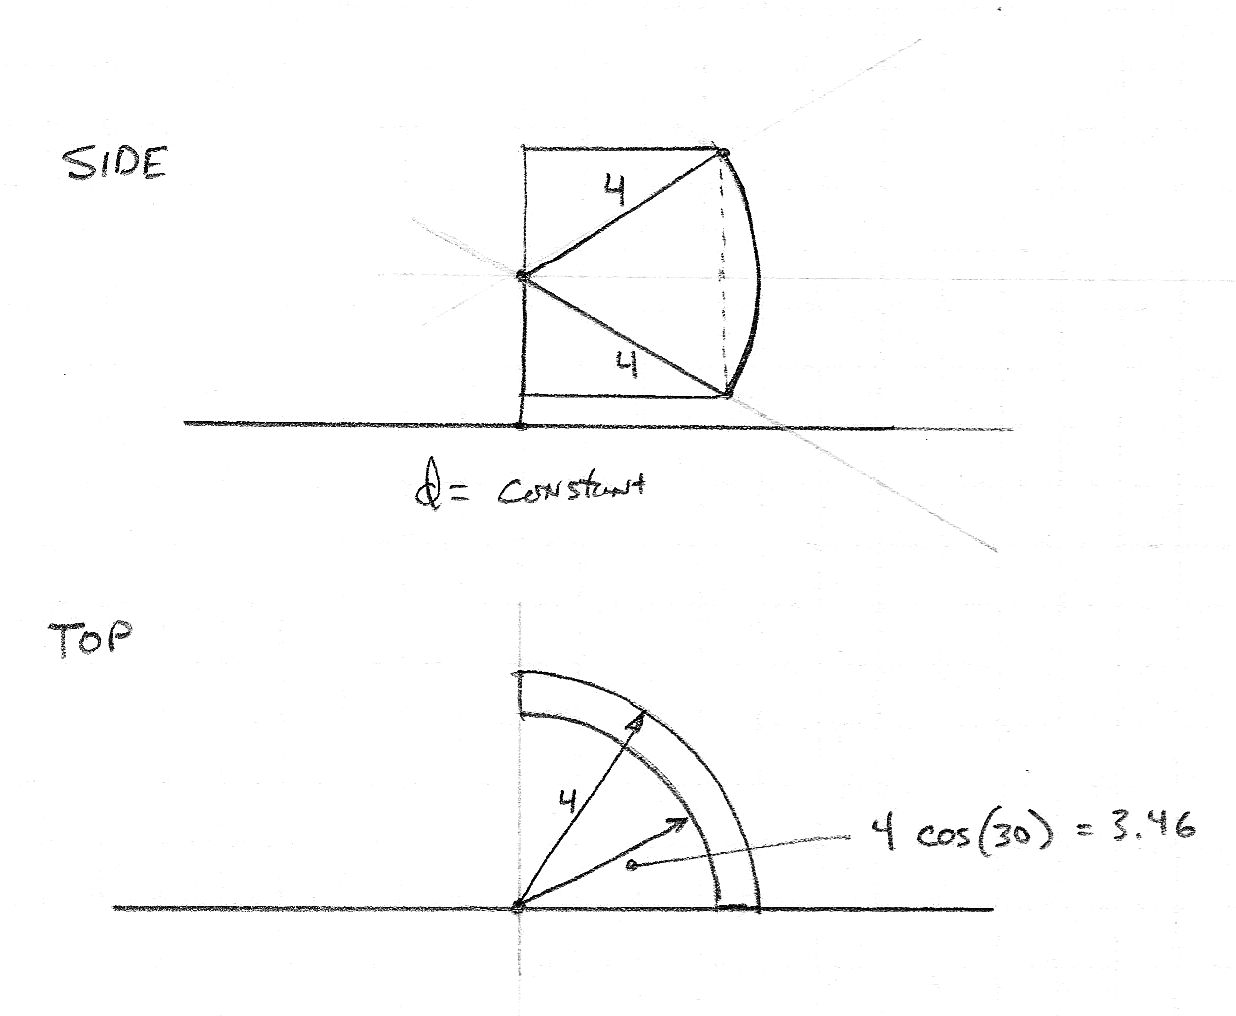 SIDE
4
4
d = constant
TOP
4
4 cos(30) = 3.46